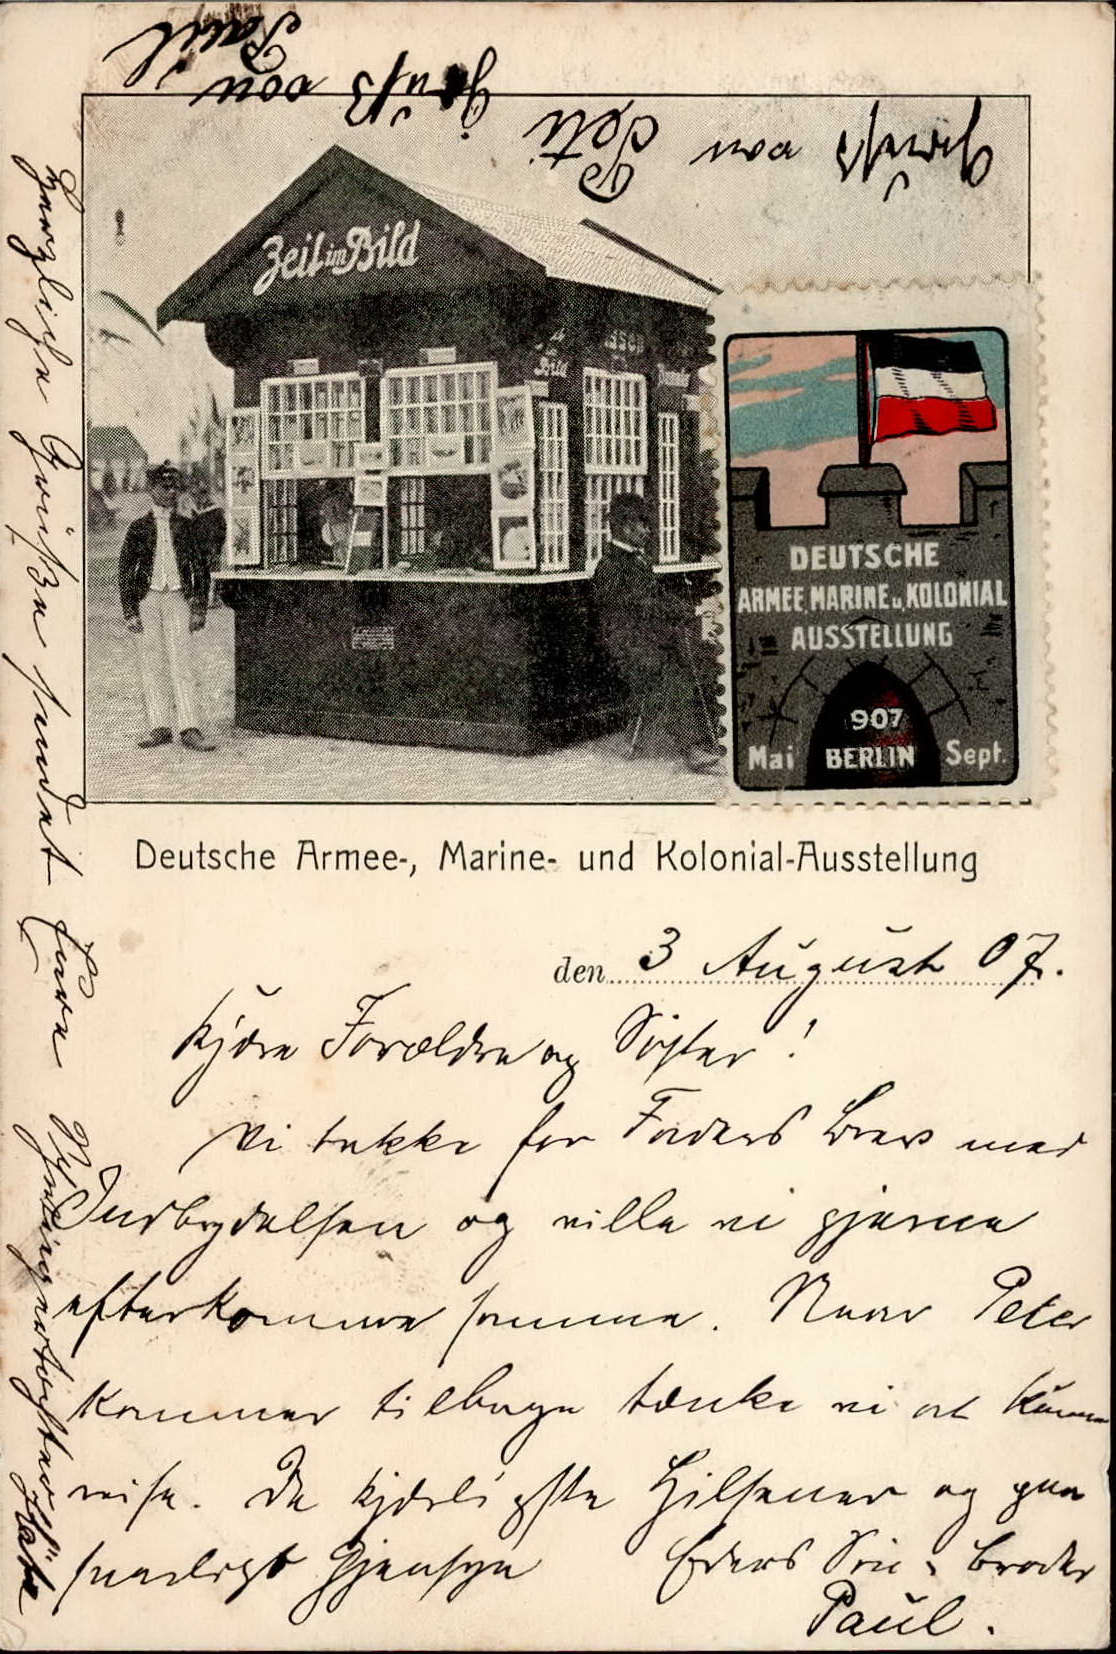 Gruß von Peti
Gruß von
Paul
Zeit im Bild
Bild
DEUTSCHE
ARMEE MARINE u. KOLONIAL
AUSSTELLUNG
907
Mai BERLIN Sept.
Deutsche Armee-, Marine- und Kolonial-Ausstellung
den 3 August 07.
Kjære Forældre og Söster!
Vi takke for Faders Brev med
Indbydelsen og ville vi gjerne
efterkomme samme. Naar Peter
kommer tilbage tænke vi at kunne
reise. De kjærligste Hilsener og paa
snarligt Gjensyn Eders Sön & Broder
Paul.
Herzliche Grüße sendet Eure